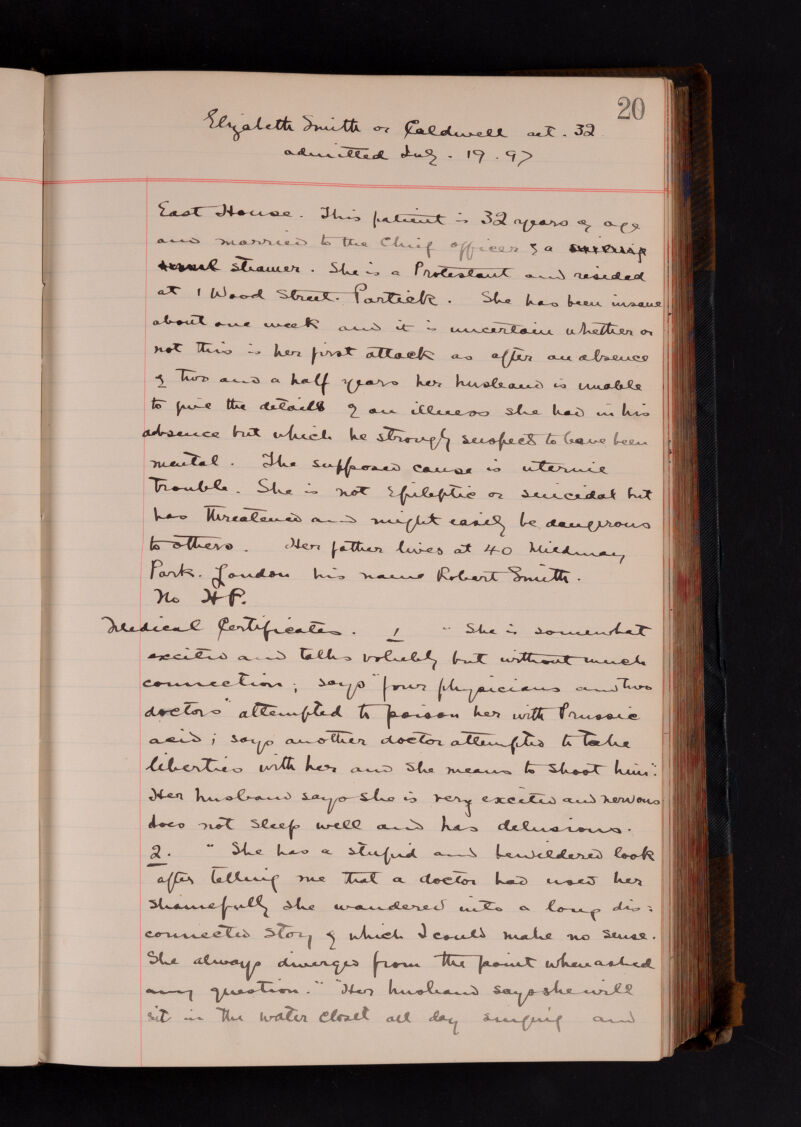 20
Elizabeth Smith or Caldwell aet. 32
admitted July. 19. 97
East House. This patient is 32 years of age
and married to the Chief officer of a
steamer. She is a Protestant and resided
at 1 Wood Street. Partick. She has been insane
about one week and it is uncertain whether or
not this is her first attack as after an absence
of two and a half years her husband is unable
to give the details of an illness she had in his
absence but which he strongly suspects to have been
mental. The supposed cause is uterine
trouble. She is not Epileptic or suicidal but
has threatened and might easily be dangerous
to others. Her father lives at 40 Mildmay
Park. London his name Robert Smith.
No H P.
Medical Certificates. 1 "She is somewhat
excited and talks volubly but without much
connection; says "four physicians and two
doctors" attempted to poison her with Prussic
acid; says another doctor attempted to take
liberties with her and she means to shoot him".
Her husband says she is very excited and nervous
does not sleep well and has delusions.
2. "She has a stupid and bewildered look
after telling me that a doctor had used her
shamefully she wandered into a long dis:
connected story of which I could make no sense.
She always diverges from the point when asked
any question." "Her husband says she will
sit in the water closet all day singing and